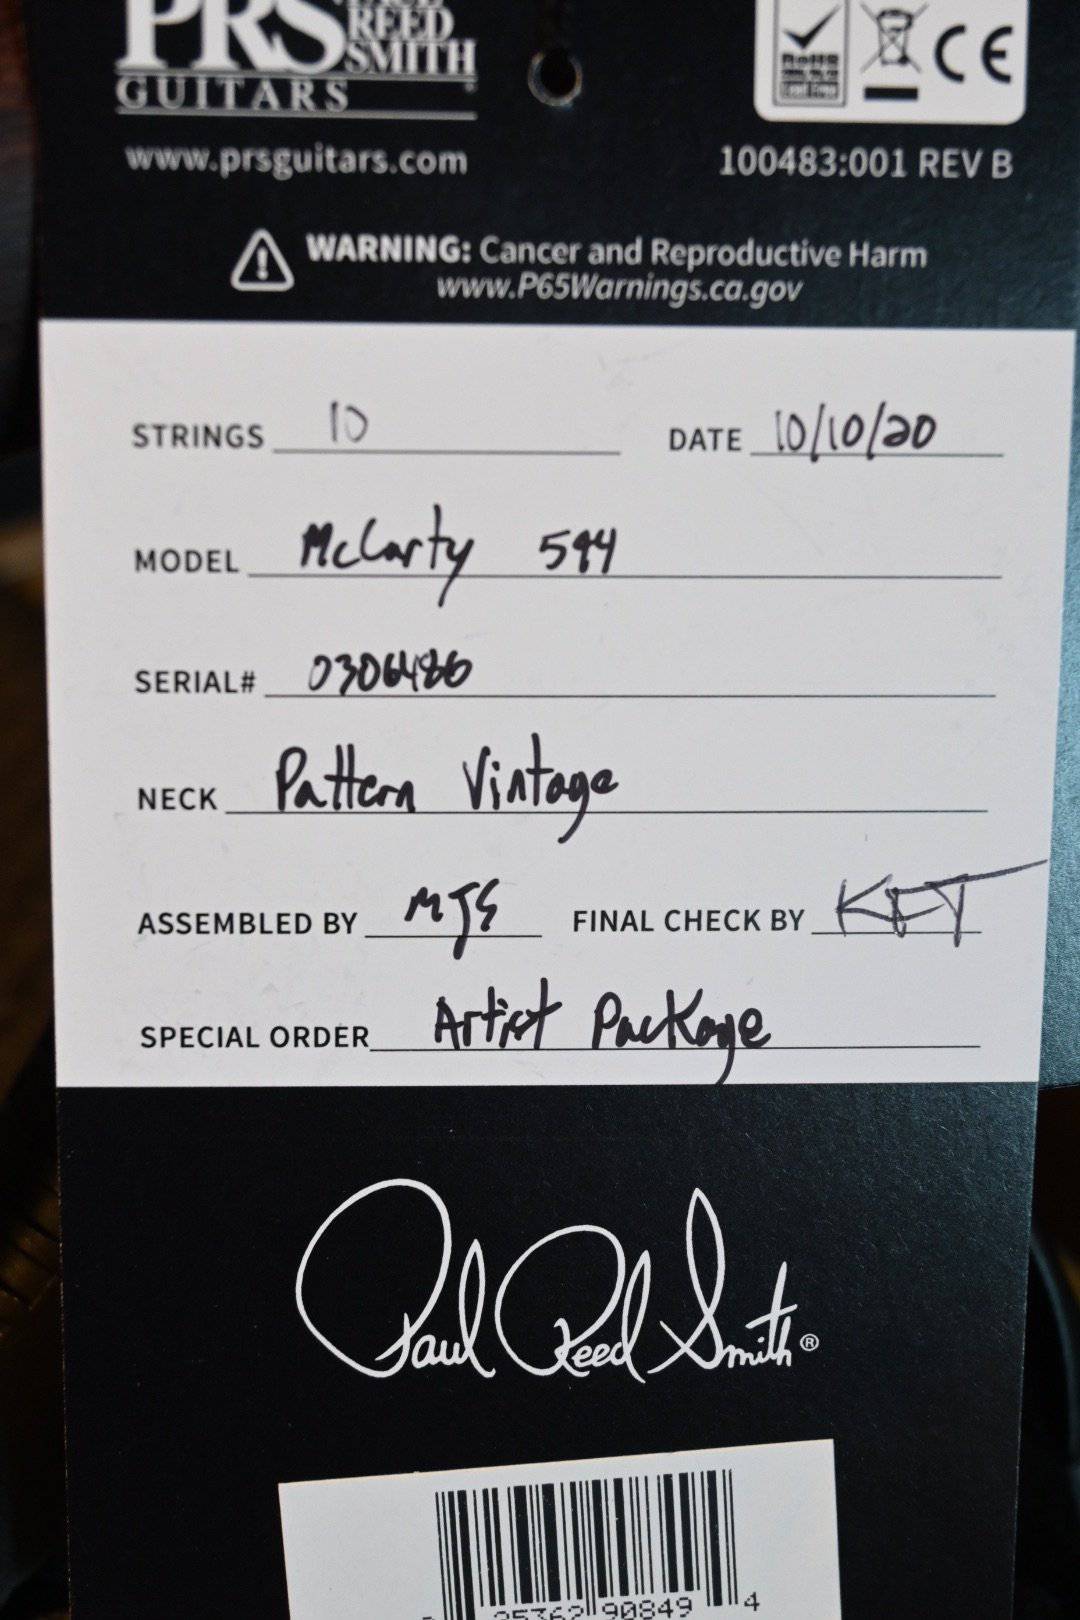 PRS PAUL
REED
SMITH
GUITARS
www.prsguitars.com
RoHS
CE
100483:001 REV B
WARNING: Cancer and Reproductive Harm
www.P65Warnings.ca.gov
STRINGS 10 DATE 10/10/20
MODEL McCarty 594
SERIAL# 0306486
NECK Pattern Vintage
ASSEMBLED BY MJS FINAL CHECK BY KFT
SPECIAL ORDER Artist Package
Paul Reed Smith®
25362 90849 4